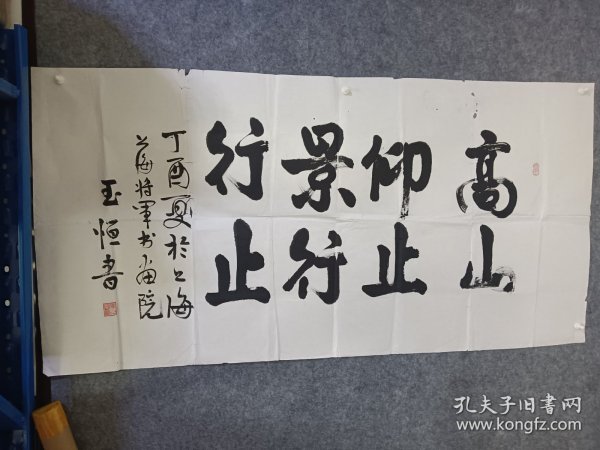 高山
仰止
景行
行止
丁酉夏於上海
上海将军书画院
玉恒书
孔夫子旧书网
www.kongfz.com